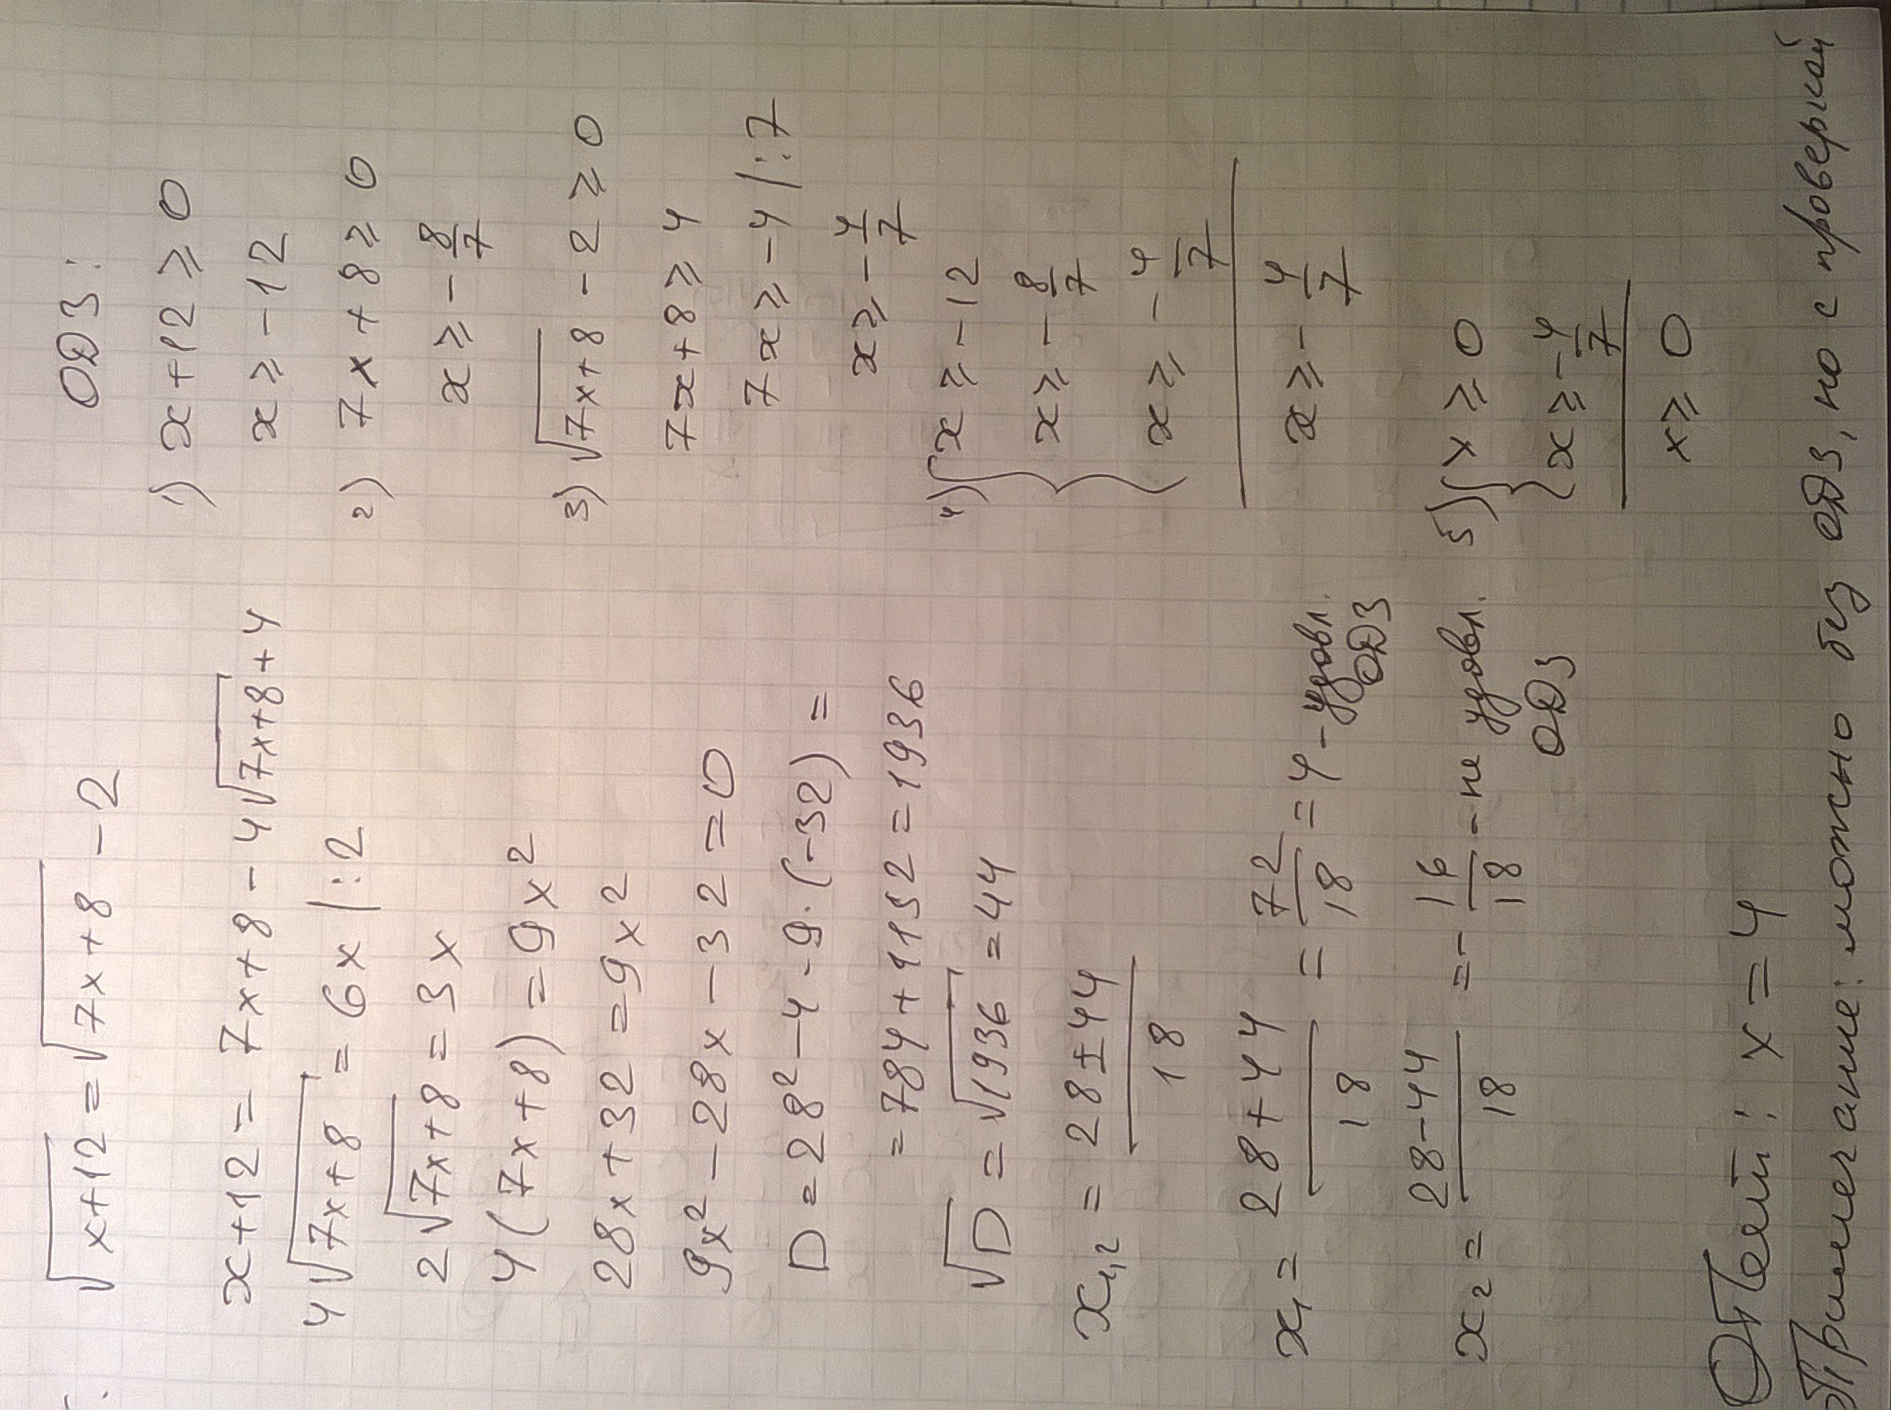 √(x+12) = √(7x+8) - 2
x+12 = 7x+8-4√(7x+8)+4
4√(7x+8) = 6x |:2
2√(7x+8) = 3x
4(7x+8) = 9x²
28x+32 = 9x²
9x² - 28x - 32 = 0
D = 28² - 4·9·(-32) =
= 784 + 1152 = 1936
√D = √1936 = 44
x₁,₂ = (28±44)/18
x₁ = (28+44)/18 = 72/18 = 4 - удовл. ОДЗ
x₂ = (28-44)/18 = -16/18 - не удовл. ОДЗ
ОДЗ:
1) x+12 ≥ 0
x ≥ -12
2) 7x+8 ≥ 0
x ≥ -8/7
3) √(7x+8) - 2 ≥ 0
7x+8 ≥ 4
7x ≥ -4 |:7
x ≥ -4/7
4) { x ≥ -12
x ≥ -8/7
x ≥ -4/7
x ≥ -4/7
5) { x ≥ 0
x ≥ -4/7
x ≥ 0
Ответ: x = 4
Примечание: можно без ОДЗ, но с проверкой